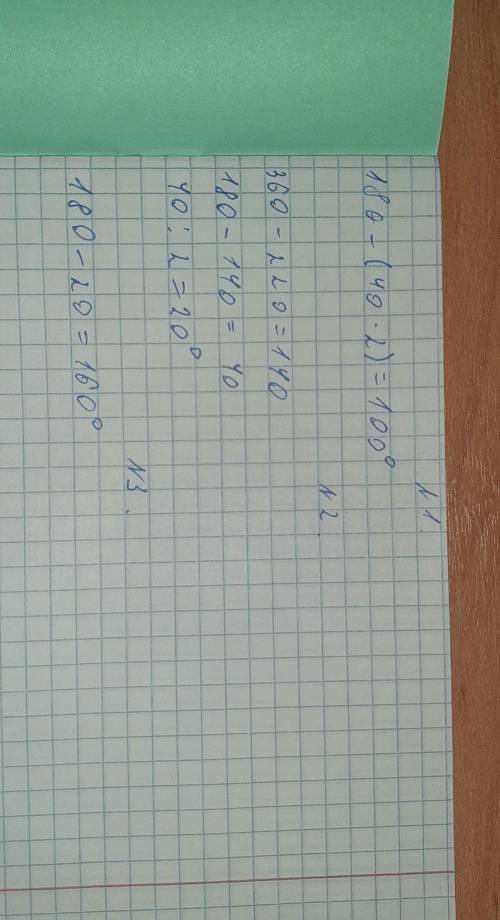 N1.
180 - (40 · 2) = 100°
N2.
360 - 220 = 140
180 - 140 = 40
40 : 2 = 20°
N3.
180 - 20 = 160°